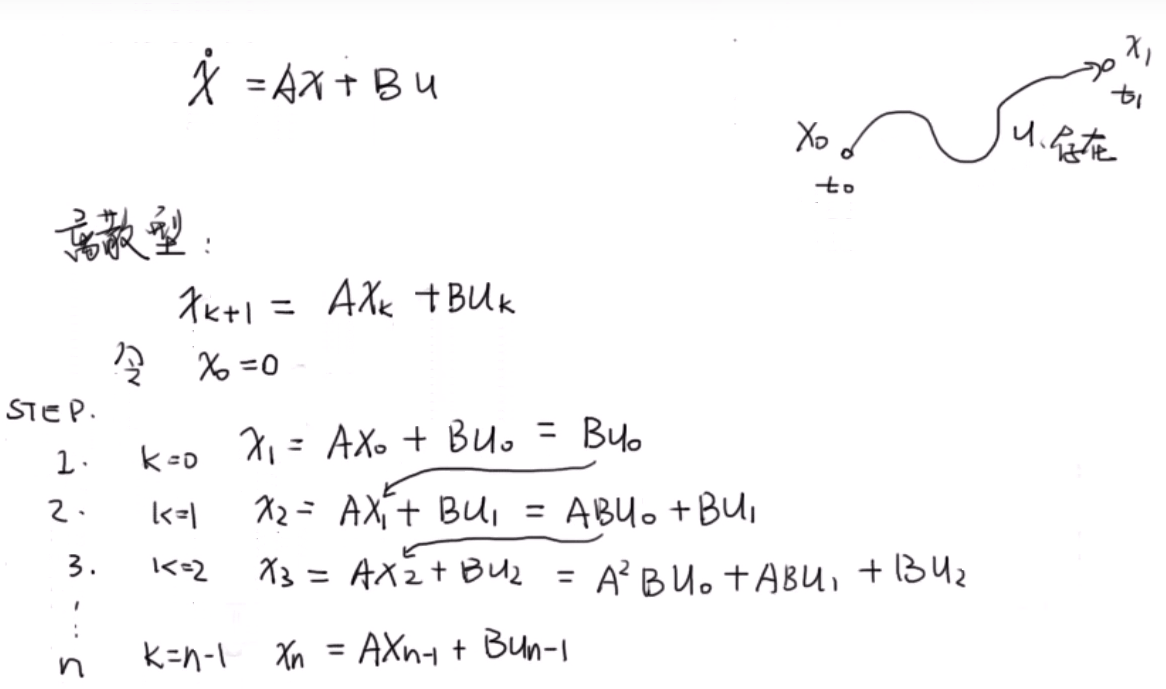 ẋ = Ax + Bu
x₁
t₁
x₀
u 存在
t₀
离散型:
xₖ₊₁ = Axₖ + Buₖ
令 x₀ = 0
STEP.
1. k=0 x₁ = Ax₀ + Bu₀ = Bu₀
2. k=1 x₂ = Ax₁ + Bu₁ = ABu₀ + Bu₁
3. k=2 x₃ = Ax₂ + Bu₂ = A²Bu₀ + ABu₁ + Bu₂
⋮
n k=n-1 xₙ = Axₙ₋₁ + Buₙ₋₁